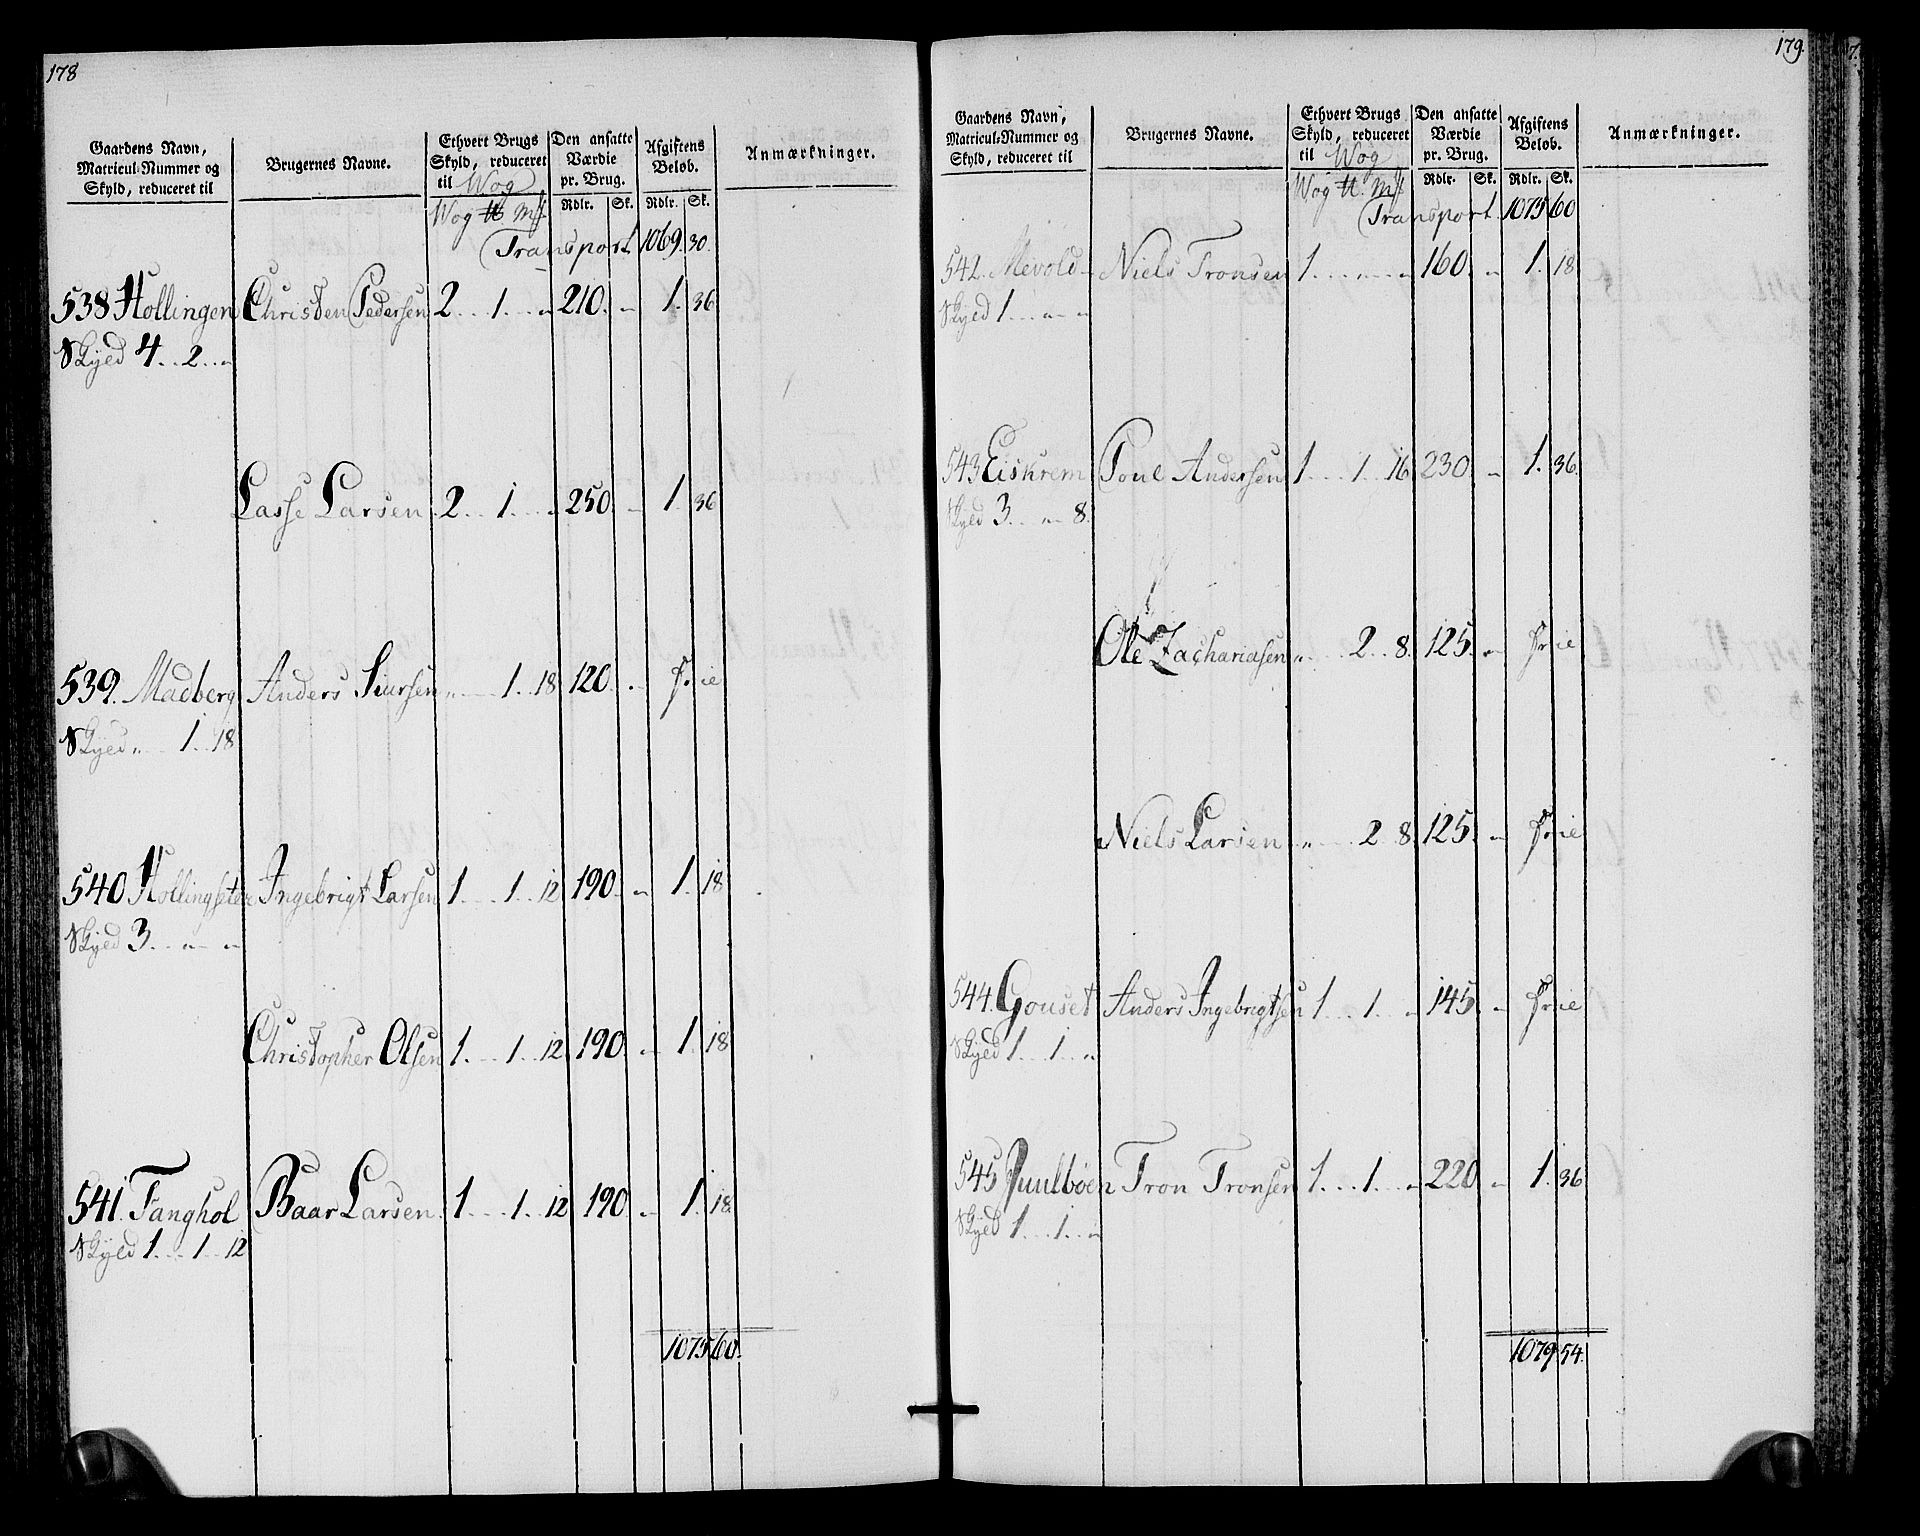 178
Gaardens Navn, Matricul-Nummer og Skyld, reduceret til
Brugernes Navne.
Ethvert Brugs Skyld, reduceret til Wog
Den ansatte Værdie pr. Brug.
Afgiftens Beløb.
Anmærkninger.
Wog ℔ Mk Rdlr. Sk. Rdlr. Sk.
Transport 1069. 30.
538 Hollingen Christen Pedersen 2 . . 1 . . „ 210. „ 1. 36
Skyld 4 . . 2 . . „
Lasse Larsen 2 . . 1 . . „ 250. „ 1. 36
539. Madberg Anders Siursen „ . . 1 . . 18 120. „ Frie
Skyld „ . . 1 . . 18
540 Hollingsetere Ingebrigt Larsen 1 . . 1 . . 12 190. „ 1. 18
Skyld 3 . . „ . . „
Christopher Olsen 1 . . 1 . . 12 190. „ 1. 18
541. Tanghol Baar Larsen 1 . . 1 . . 12 190. „ 1. 18
Skyld 1 . . 1 . . 12
1075 60.
179.
Gaardens Navn, Matricul-Nummer og Skyld, reduceret til
Brugernes Navne.
Ethvert Brugs Skyld, reduceret til Wog
Den ansatte Værdie pr. Brug.
Afgiftens Beløb.
Anmærkninger.
Wog ℔ Mk Rdlr. Sk. Rdlr. Sk.
Transport 1075 60
542. Mevold Niels Tronsen 1 . . „ . . „ 160. „ 1. 18
Skyld 1 . . „ . . „
543 Eiskrem Poul Andersen 1 . . 1 . . 16 230. „ 1. 36
Skyld 3 . . „ . . 8.
Ole Zachariasen „ . . 2 . . 8. 125. „ Frie
Niels Larsen „ . . 2 8. 125. „ Frie
544. Gouset Anders Ingebrigtsen 1 . . 1 . . „ 145. „ Frie
Skyld 1 . . 1 . . „
545 Juulbøen Tron Tronsen 1 . . 1 . . „ 220 „ 1. 36
Skyld 1 . . 1 . . „
1079 54.